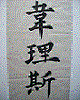 韋理斯